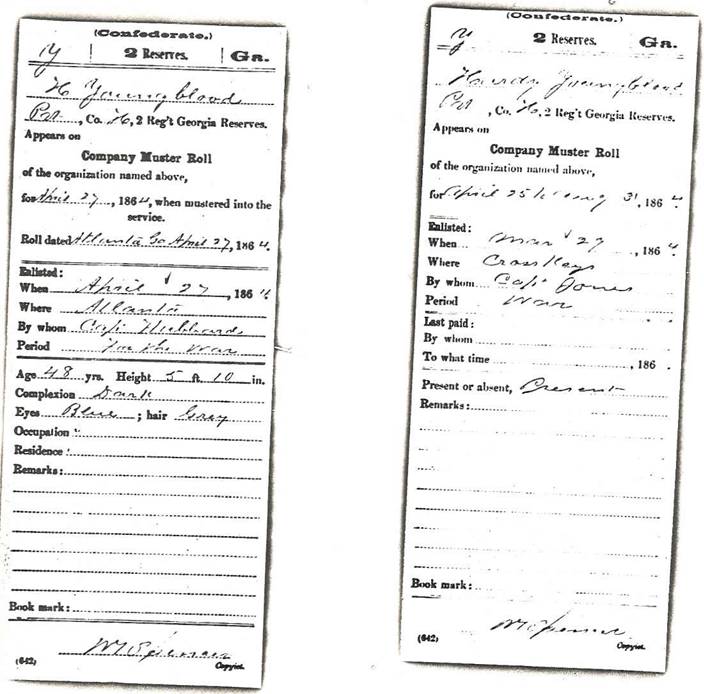 (Confederate.)
Y | 2 Reserves. | Ga.
H Youngblood
Pvt, Co. H, 2 Reg't Georgia Reserves.
Appears on
Company Muster Roll
of the organization named above,
for April 27, 1864, when mustered into the
service.
Roll dated Atlanta Ga April 27, 1864.
Enlisted:
When April 27, 1864
Where Atlanta
By whom Capt Hubbard
Period for the War
Age 48 yrs. Height 5 ft 10 in.
Complexion Dark
Eyes Blue; hair Grey
Occupation:
Residence:
Remarks:
Book mark:
(642) Copyist.
(Confederate.)
Y | 2 Reserves. | Ga.
Hardy Youngblood
Pvt, Co. H, 2 Reg't Georgia Reserves.
Appears on
Company Muster Roll
of the organization named above,
for April 25 to Aug 31, 1864.
Enlisted:
When Mar 27, 1864.
Where Cross Keys
By whom Capt Jones
Period War
Last paid:
By whom
To what time, 186 .
Present or absent, Present
Remarks:
Book mark:
(642) Copyist.